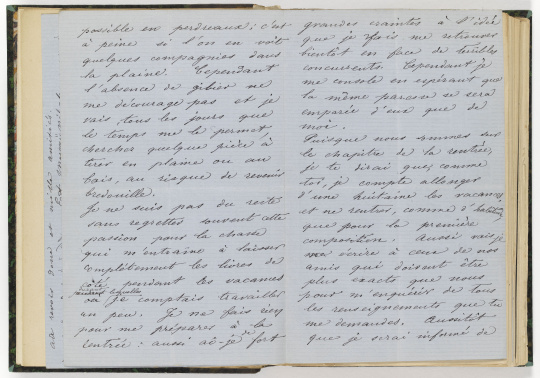 possible en perdreaux; c'est
à peine si l'on en voit
quelques compagnies dans
la plaine. Cependant
l'absence de gibier ne
me décourage pas et je
vais tous les jours que
le temps me le permet
chercher quelque pièce à
tirer en plaine ou au
bois, au risque de revenir
bredouille.
Je ne suis pas du reste
sans regretter souvent cette
passion pour la chasse
qui m'entraîne à laisser
complètement les livres de
côté pendant les vacances
pendant lesquelles
où je comptais travailler
un peu. Je ne fais rien
pour me préparer à la
rentrée: aussi ai-je de fort
grandes craintes à l'idée
que je vais me retrouver
bientôt en face de
concurrents. Cependant je
me console en espérant que
la même paresse se sera
emparée d'eux que de
moi.
Puisque nous sommes sur
le chapitre de la rentrée,
je te dirai que, comme
toi, je compte allonger
d'une huitaine les vacances
et ne rentrer, comme d'habitude,
que pour la première
composition. Aussi vais je
écrire à ceux de nos
amis qui doivent être
plus exacts que nous
pour m'enquérir de tous
les renseignements que tu
me demandes. Aussitôt
que je serai informé de